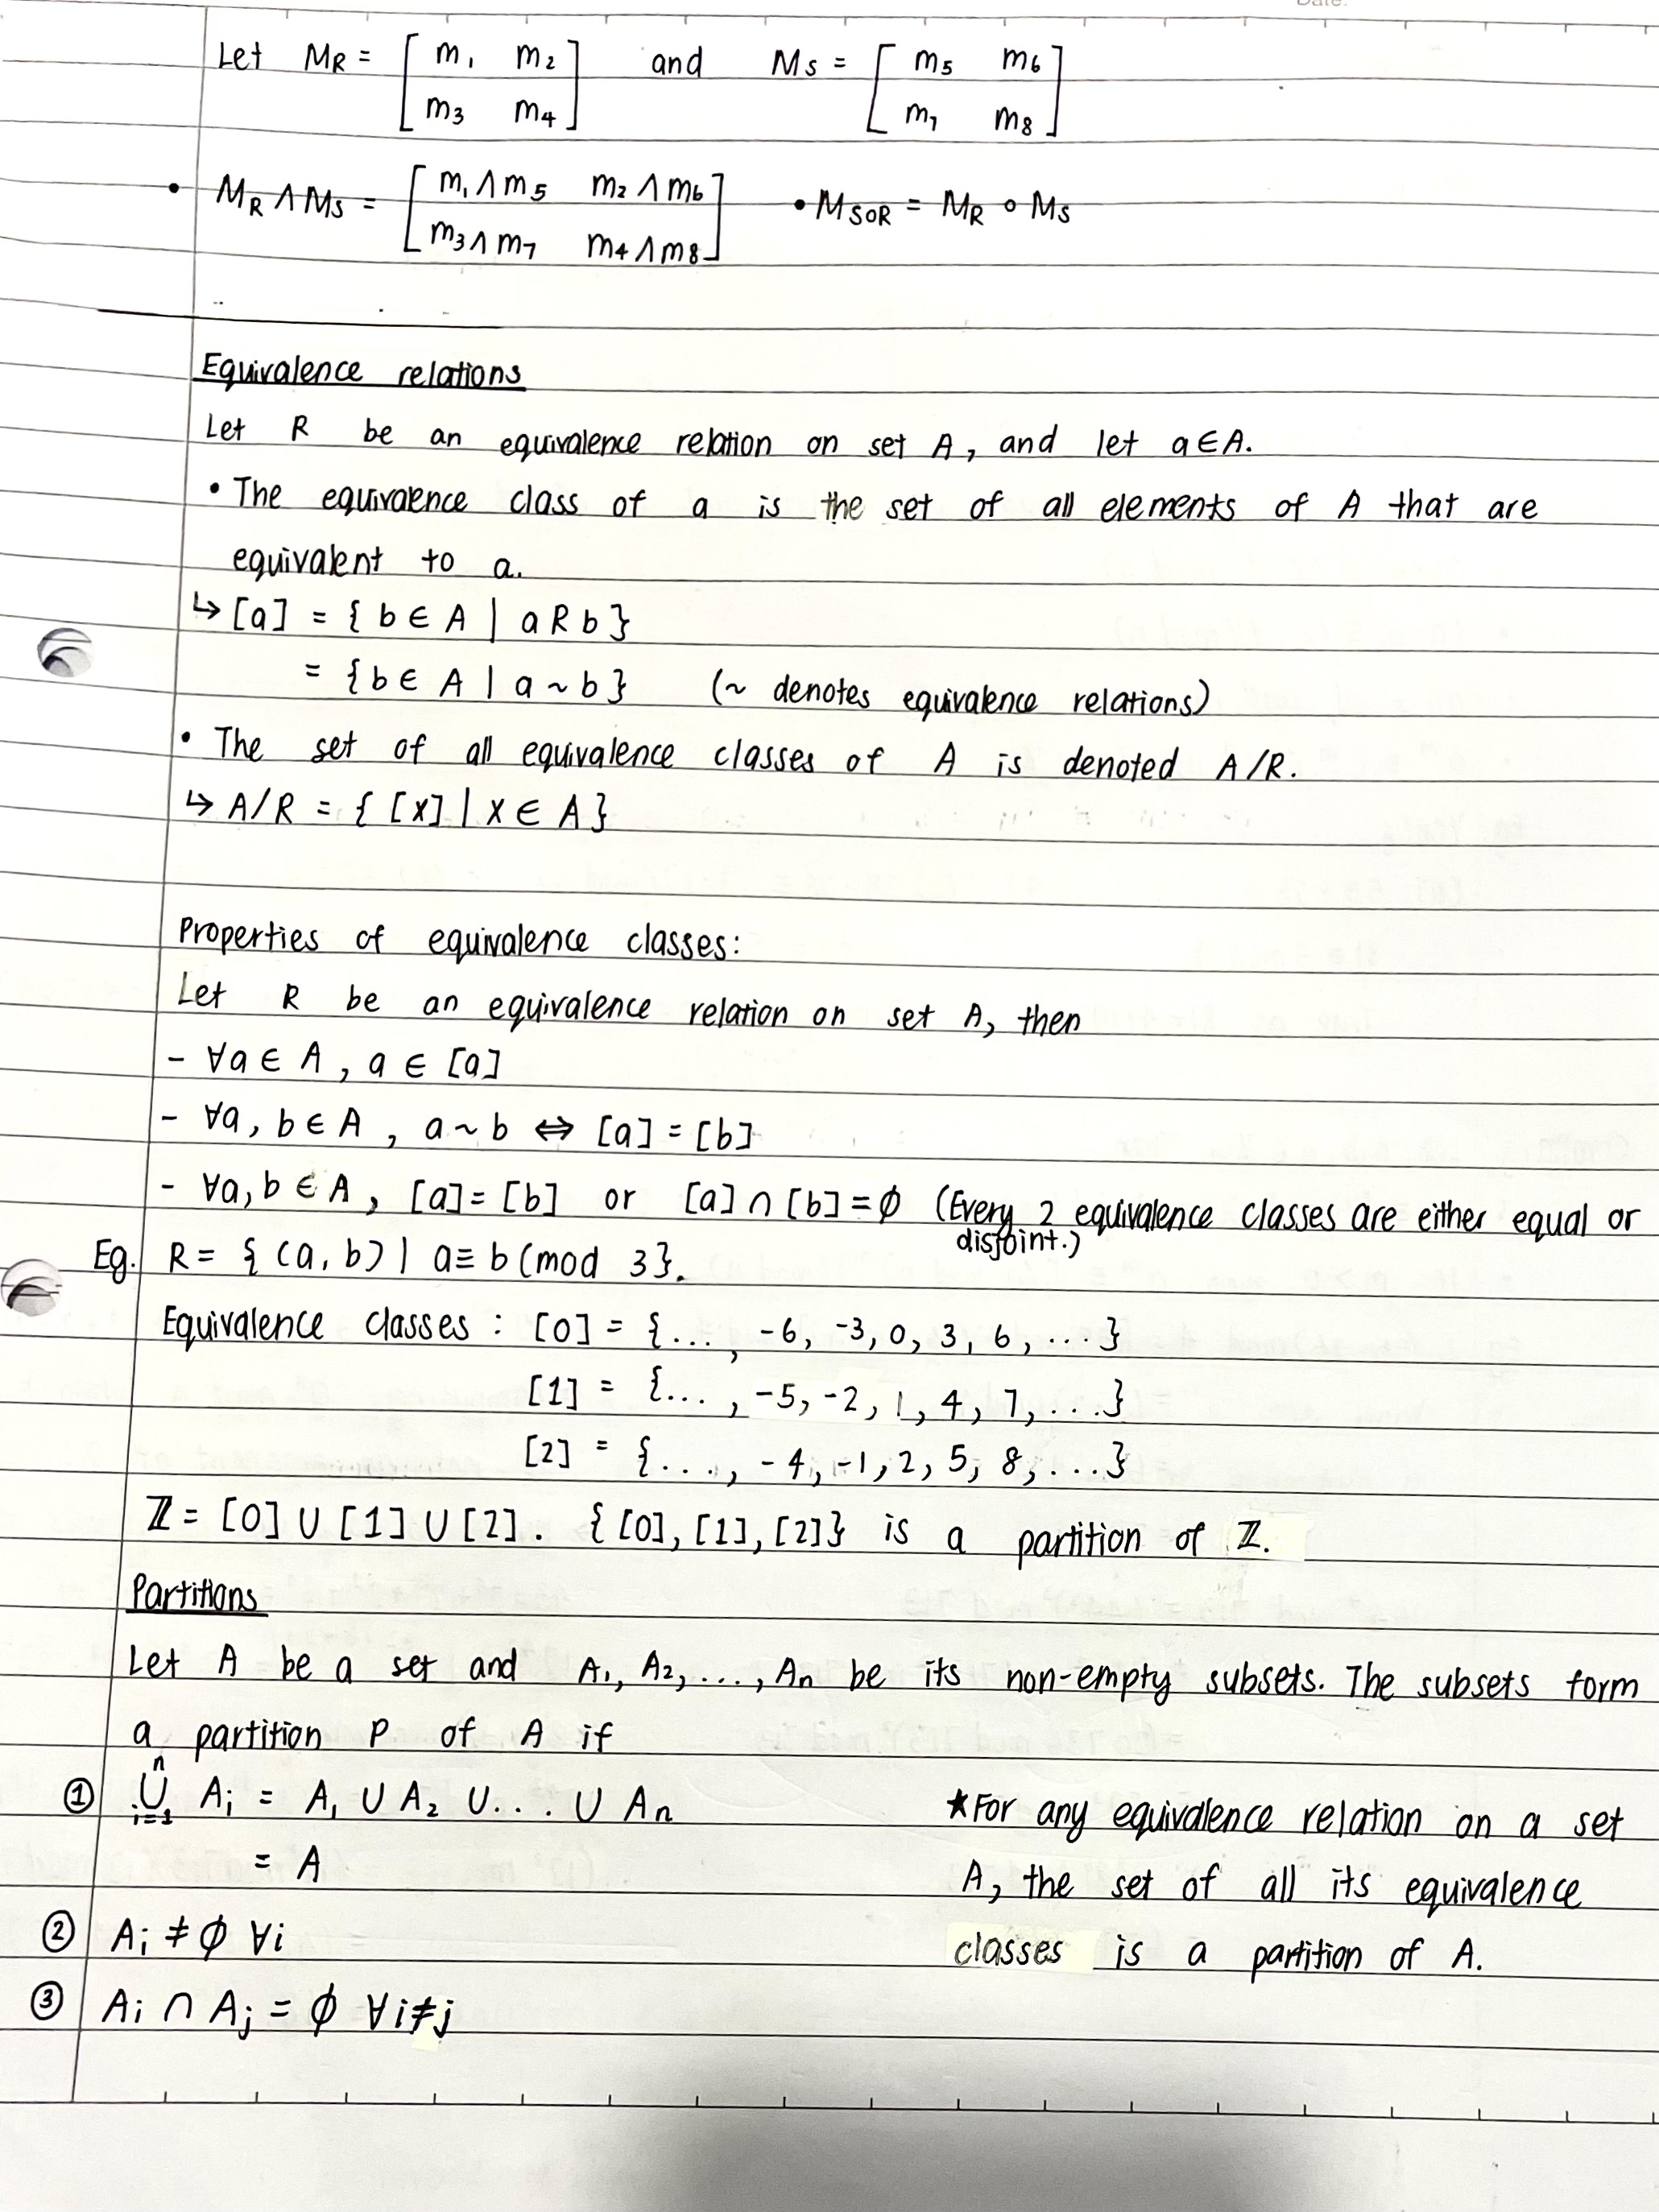 Date:
Let M_R = [ m₁ m₂ ; m₃ m₄ ] and M_S = [ m₅ m₆ ; m₇ m₈ ]
• M_R ∧ M_S = [ m₁∧m₅ m₂∧m₆ ; m₃∧m₇ m₄∧m₈ ] • M_S∘R = M_R ∘ M_S
Equivalence relations
Let R be an equivalence relation on set A, and let a∈A.
• The equivalence class of a is the set of all elements of A that are
equivalent to a.
↳ [a] = { b ∈ A | a R b }
= { b ∈ A | a ~ b } (~ denotes equivalence relations)
• The set of all equivalence classes of A is denoted A/R.
↳ A/R = { [x] | x ∈ A }
Properties of equivalence classes:
Let R be an equivalence relation on set A, then
- ∀a ∈ A, a ∈ [a]
- ∀a, b ∈ A, a ~ b ⇔ [a] = [b]
- ∀a, b ∈ A, [a] = [b] or [a] ∩ [b] = ∅ (Every 2 equivalence classes are either equal or
disjoint.)
Eg. R = { (a, b) | a ≡ b (mod 3}.
Equivalence classes : [0] = {..., -6, -3, 0, 3, 6, ...}
[1] = {..., -5, -2, 1, 4, 7, ...}
[2] = {..., -4, -1, 2, 5, 8, ...}
ℤ = [0] ∪ [1] ∪ [2]. {[0], [1], [2]} is a partition of ℤ.
Partitions
Let A be a set and A₁, A₂, ..., Aₙ be its non-empty subsets. The subsets form
a partition P of A if
① ⋃ⁿᵢ₌₁ Aᵢ = A₁ ∪ A₂ ∪ ... ∪ Aₙ
= A
② Aᵢ ≠ ∅ ∀i
③ Aᵢ ∩ Aⱼ = ∅ ∀i≠j
★For any equivalence relation on a set
A, the set of all its equivalence
classes is a partition of A.